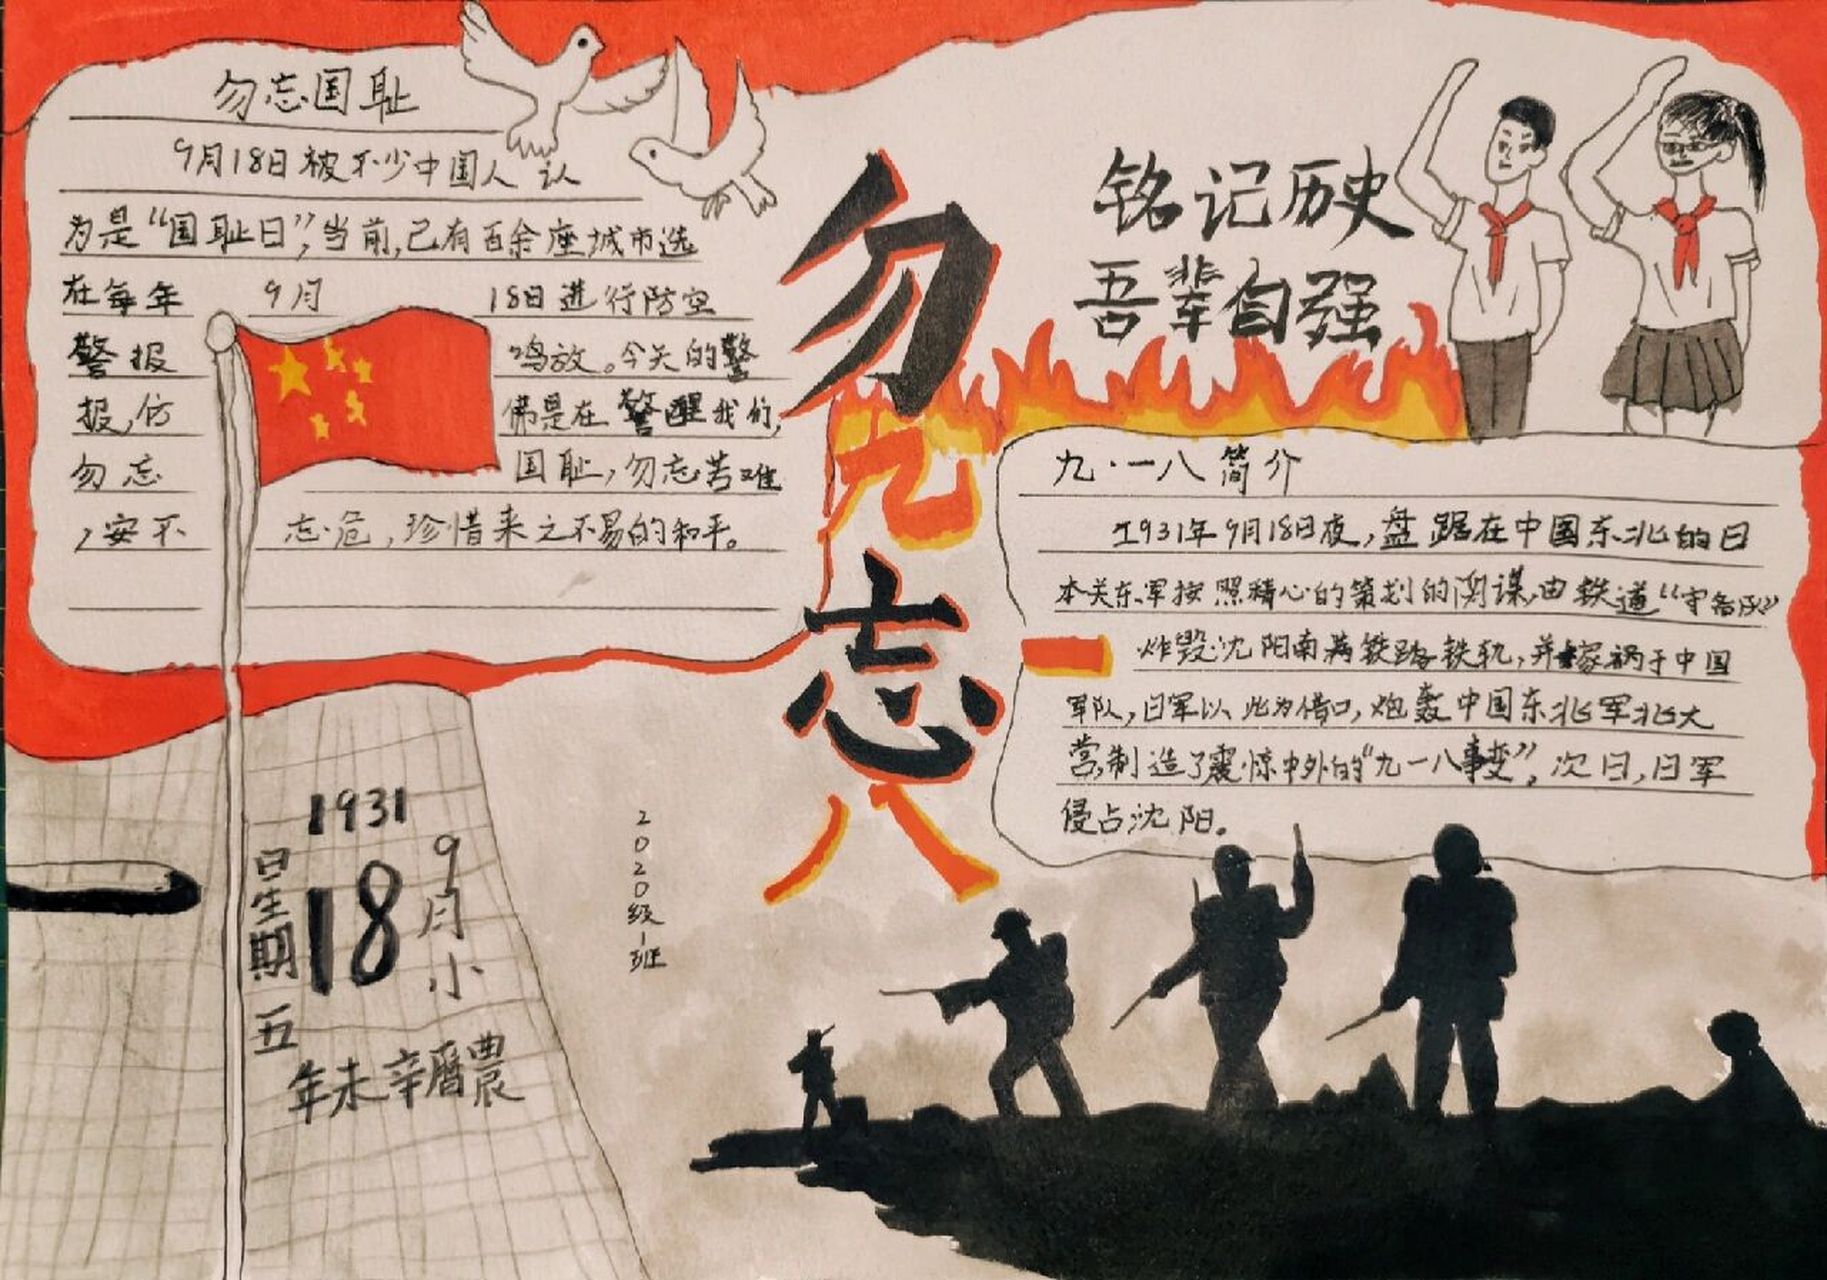 勿忘国耻
9月18日被不少中国人认
为是“国耻日”,当前,已有百余座城市选
在每年 9月 18日进行防空
警报 鸣放。今天的警
报,仿 佛是在警醒我们,
勿忘 国耻,勿忘苦难
,安不 忘危,珍惜来之不易的和平。
勿忘
九一八
铭记历史
吾辈自强
九·一八简介
1931年9月18日夜,盘踞在中国东北的日
本关东军按照精心的策划的阴谋,由铁道“守备队”
炸毁沈阳南满铁路铁轨,并嫁祸于中国
军队,日军以此为借口,炮轰中国东北军北大
营,制造了震惊中外的“九一八事变”,次日,日军
侵占沈阳。
1931
9月小
18
日星期五
年未辛曆農
2020级1班